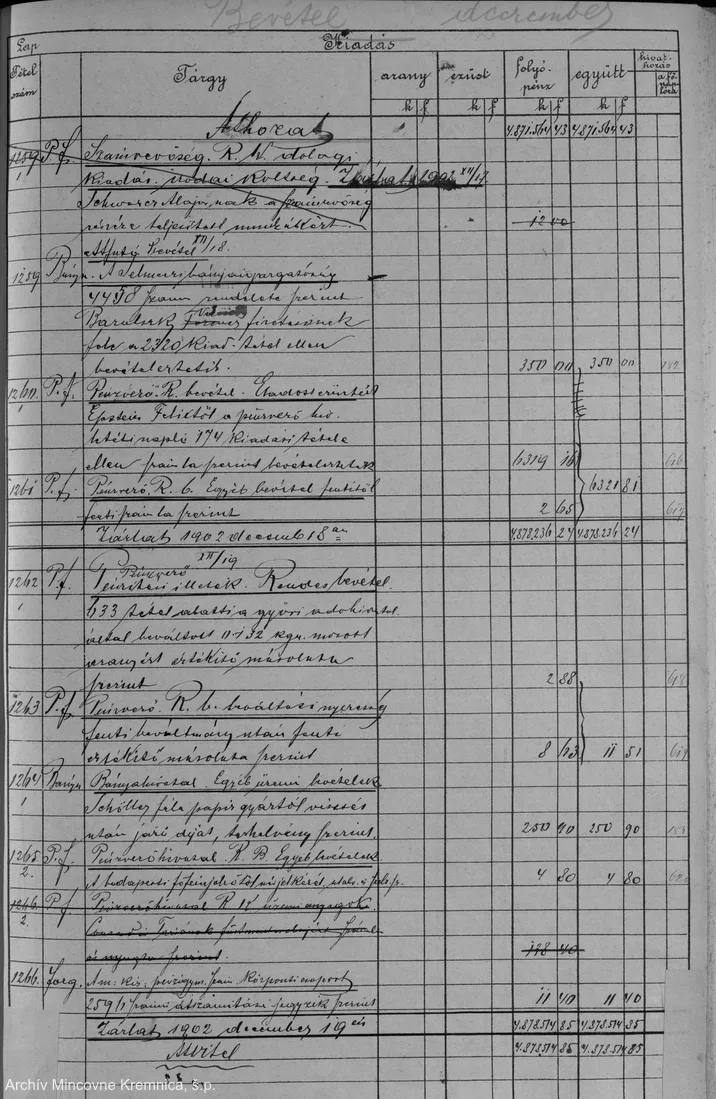 Bevétel december
Kiadás
Lap
Tétel szám
Tárgy
arany
ezüst
folyó-pénz
együtt
hivat-kozás
a fő-naplóra
k f k f k f k f
Áthozat 4.871.564 43 4.871.564 43
1259 P.f. Számvevőség. R. W. dologi
1 kiadás. irodai költség. Zárlat 1902 XII/17
Schwarz Alajosnak a számvevőség
részére teljesített munkákért. 12 00
Átfutó bevétel XII/18.
1259 Bánya. A Selmeczi bányaigazgatóság
4458 számu rendelete szerint
fizetésének
fele a 2320 kiad. tétel ellen
bevételeztetik. 350 00 350 00
1260 P.f. Pénzverő. R. bevétel.
1 Epstein Felixtől a pénzverő
letéti napló 174 kiadási tétele
ellen számla szerint bevételeztetik 6319 16 616
1261 P.f. Pénzverő. R. b. Egyéb bevétel fentitől 6321 81
1 fenti számla szerint 2 65 617
Zárlat 1902 decemb 18 án 4.878.236 24 4.878.236 24
XII/19
1262 P.f. Pénzverő illeték. Rendes bevétel.
1 633 tétel alatt a győri adohivatal
által beváltott kgr. mosott
aranyért értékítő másolata
szerint 2 88 618
1263 P.f. Pénzverő. R. b. beváltási nyereség
1 fenti beváltmány után fenti
értékítő másolata szerint 8 63 11 51 619
1264 Bánya Bányahivatal. Egyéb üzemi bevételek
1 Schöller féle papir gyártól vizesés
után járó díját, terhelvény szerint. 250 90 250 90
1265 P.f. Pénzverőhivatal. R. B. Egyéb bevételek
2. A budapesti 4 80 4 80 620
1266 P.f. Pénzverőhivatal R. W. üzemi anyagok.
2.
és nyugta szerint. 128 40
1266. Forg. A m: kir. pénzügym. szám központi csoport
259/1 számú átszámítási jegyzék szerint 11 40 11 40
Zárlat 1902 december 19 én 4.878.514 85 4.878.514 85
Átvitel 4.878.514 85 4.878.514 85
Archív Mincovne Kremnica, š.p.